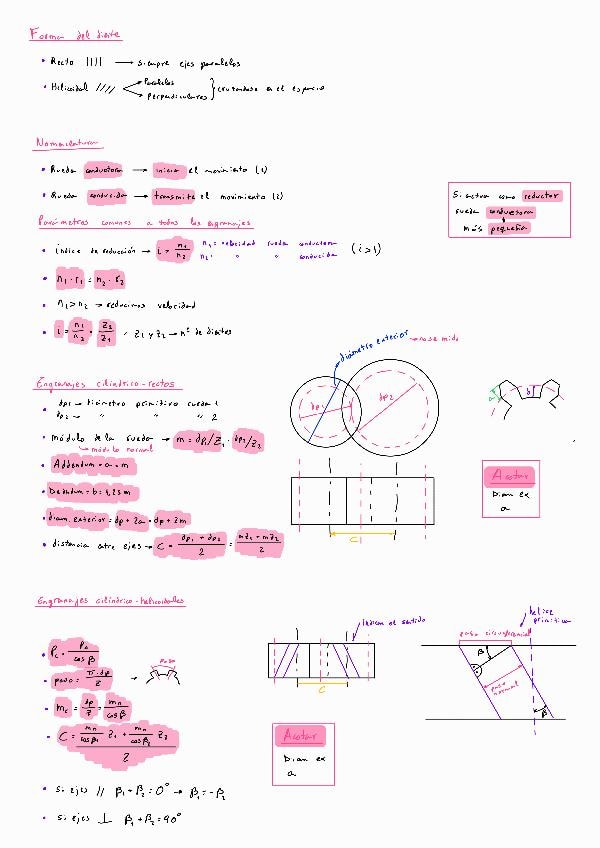 Forma del diente
• Recto //// → siempre ejes paralelos
• Helicoidal //// Paralelos
Perpendiculares } cruzandose en el espacio
Nomenclatura
• Rueda conductora → inicia el movimiento (1)
• Rueda conducida → transmite el movimiento (2)
Si actua como reductor
rueda conductora
más pequeña
Parámetros comunes a todos los engranajes
• Índice de reducción → i = n₁/n₂ n₁ = velocidad rueda conductora (i>1)
n₂ = " " conducida
• n₁ · r₁ = n₂ · r₂
• n₁ > n₂ → reducimos velocidad
• i = n₁/n₂ = Z₂/Z₁ / Z₁ y Z₂ → nº de dientes
Engranajes cilíndrico-rectos
• dp₁ → diámetro primitivo rueda 1
dp₂ → " " " 2
• módulo de la rueda → m = dp₁/Z₁ = dp₂/Z₂
→ módulo normal
• Addendum = a = m
• Dedendum = b = 1,25m
• diam. exterior = dp + 2a = dp + 2m
• distancia entre ejes → C = (dp₁ + dp₂)/2 = (mZ₁ + mZ₂)/2
diámetro exterior → no se mide
dp₁
dp₂
C
a
b
Acotar
Diam ex
a
Engranajes cilíndrico-helicoidales
• Pc = Pn/cos β
• paso = π·dp/Z → Paso
• mc = dp/Z = mn/cos β
• C = (mn/cos β₁ Z₁ + mn/cos β₂ Z₂)/2
• si ejes // β₁ + β₂ = 0° → β₁ = -β₂
• si ejes ⊥ β₁ + β₂ = 90°
Indican el sentido
C
Acotar
Diam ex
a
helice
primitiva
paso circunferencial
β
paso
normal
β